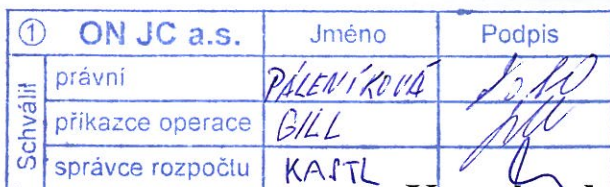 ① ON JC a.s. Jméno Podpis
Schválil
právní PÁLENÍKOVÁ
příkazce operace GILL
správce rozpočtu KASTL